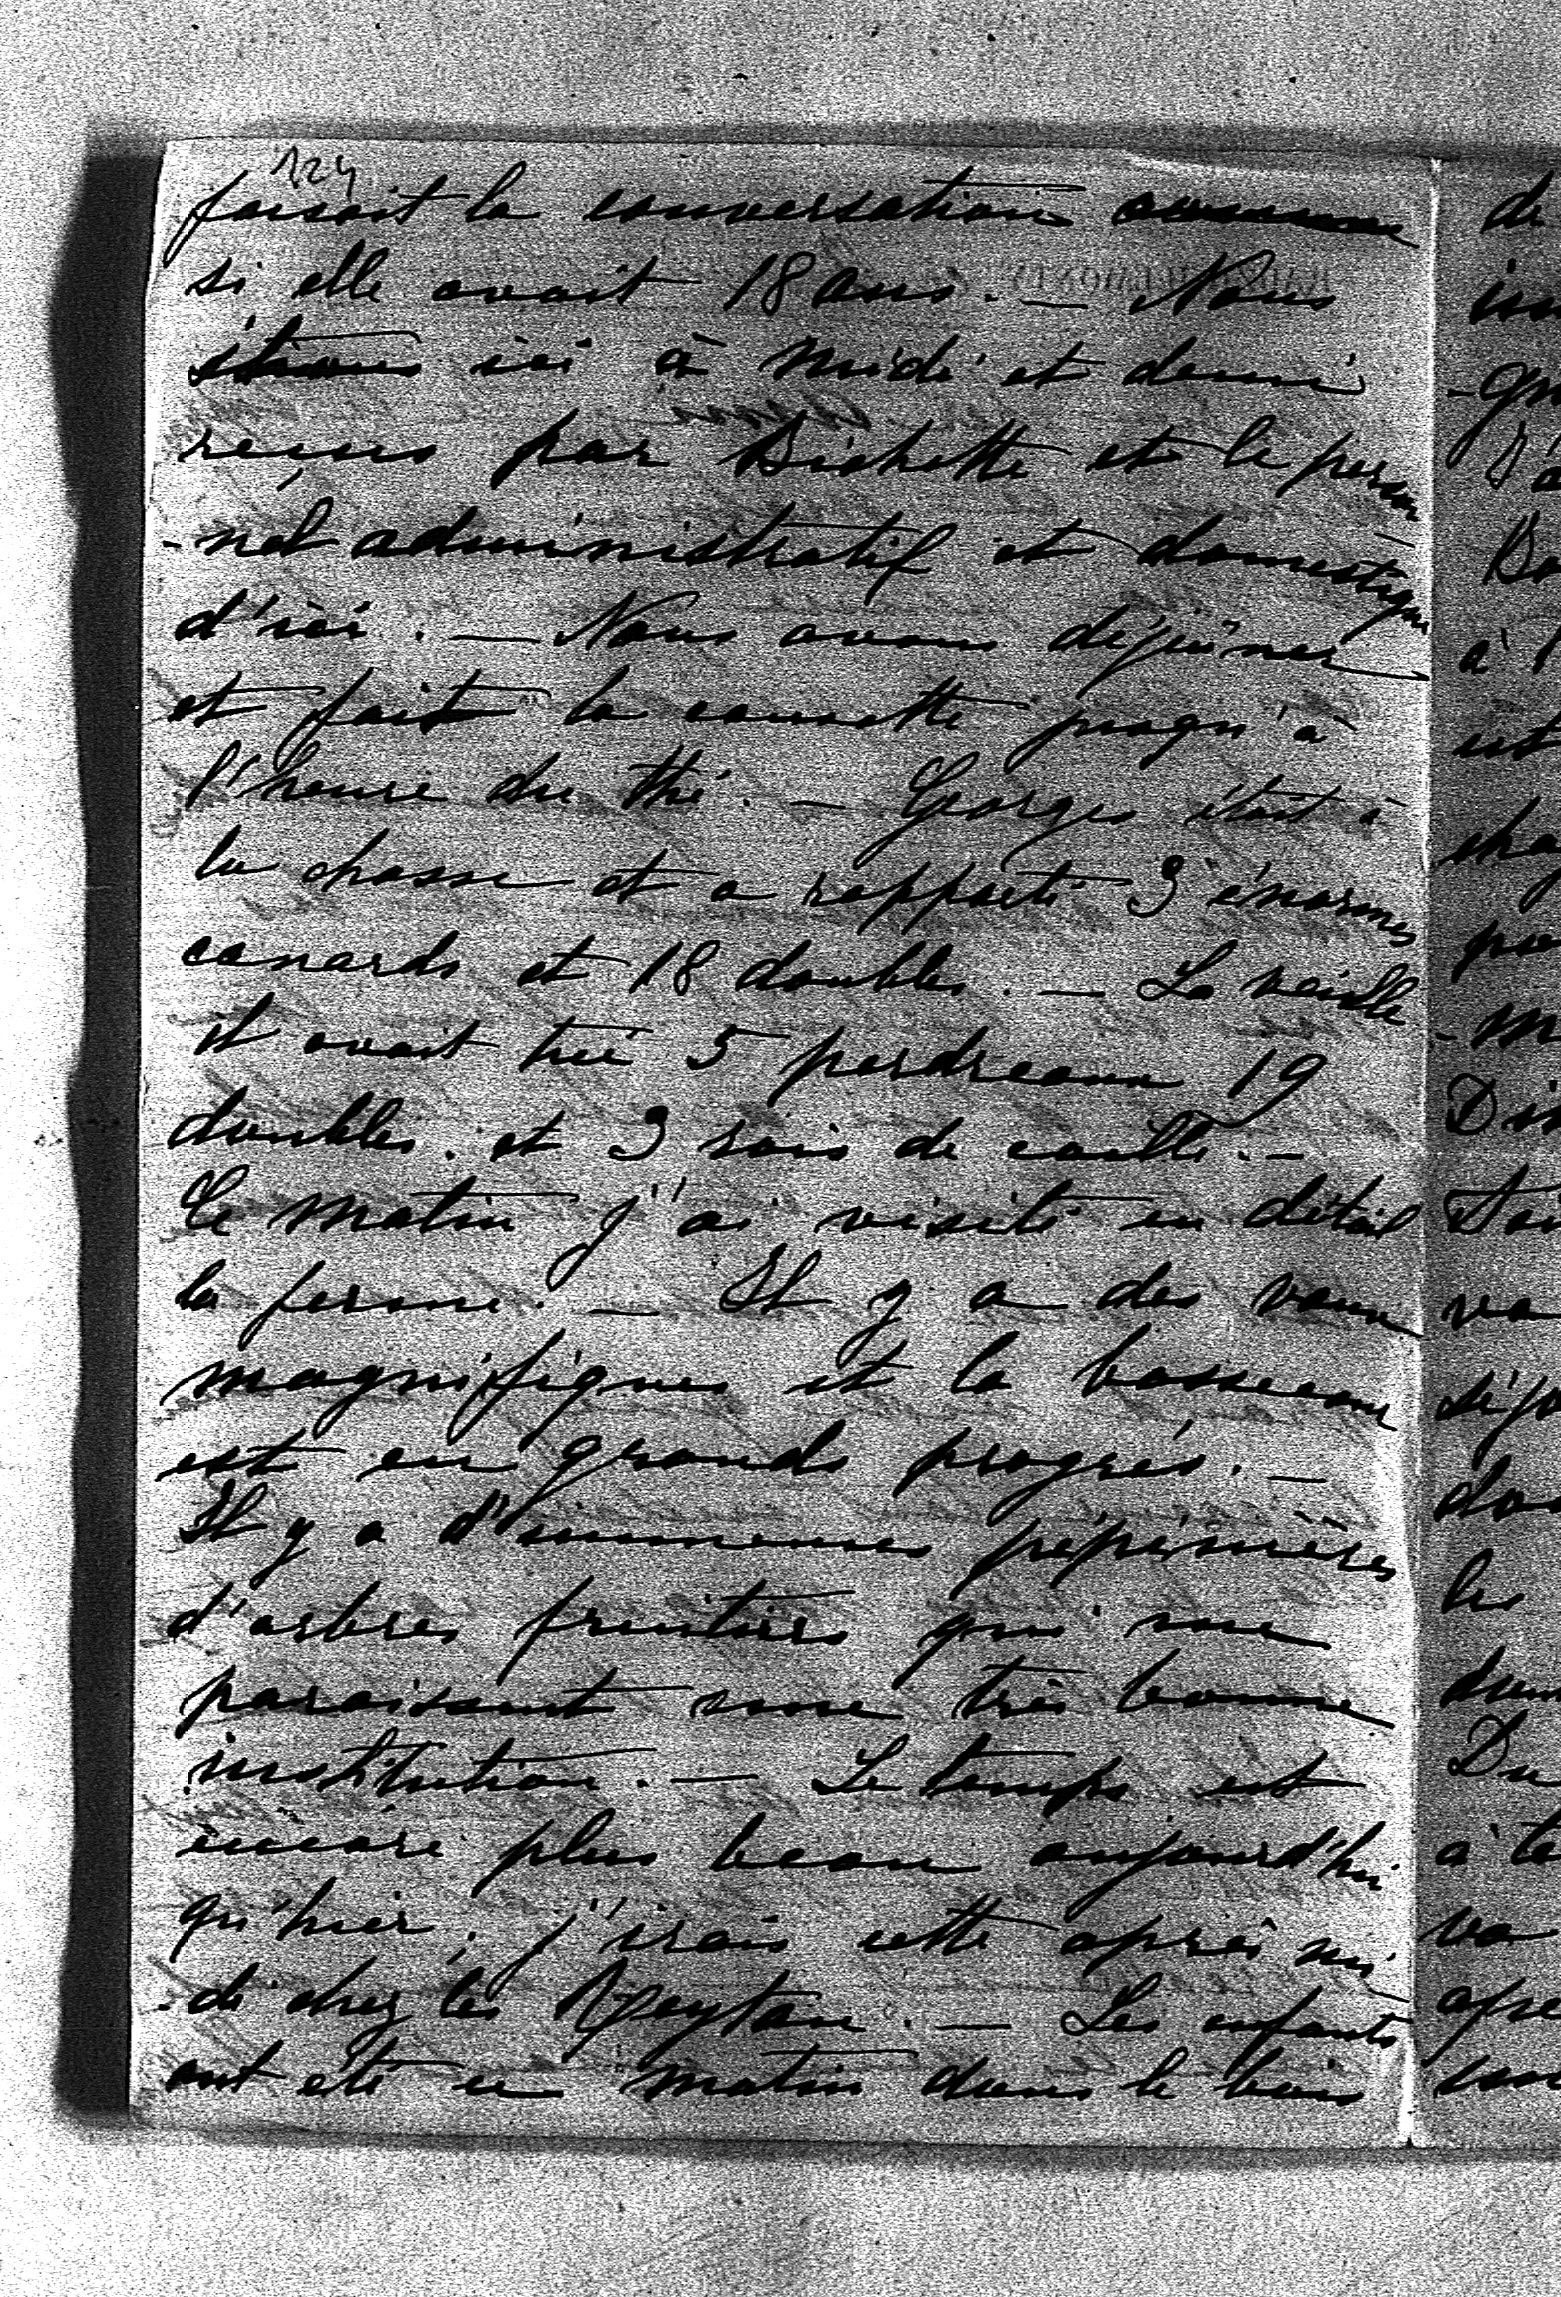 124
faisait la conversation comme
si elle avait 18 ans. — Nous
étions ici à midi et demi
reçus par Bichette et le person
-nel administratif et domestique
d'ici. — Nous avons déjeuner
et fait la causette jusqu'à
l'heure du thé. — Georges était à
la chasse et a rapporté 3 énormes
canards et 18 doubles. — La veille
il avait tué 5 perdreaux 19
doubles. et 3 rois de caille. —
Ce matin j'ai visité en détail
la ferme. — Il y a des veaux
magnifiques et la bassecour
est en grands progrès. —
Il y a d'immenses pépinières
d'arbres fruitiers qui me
paraissent une très bonne
institution. — Le temps est
encore plus beau aujourd'hui
qu'hier, j'irais cette après mi
-di chez les Peytan. — Les enfants
ont été ce matin dans le bois